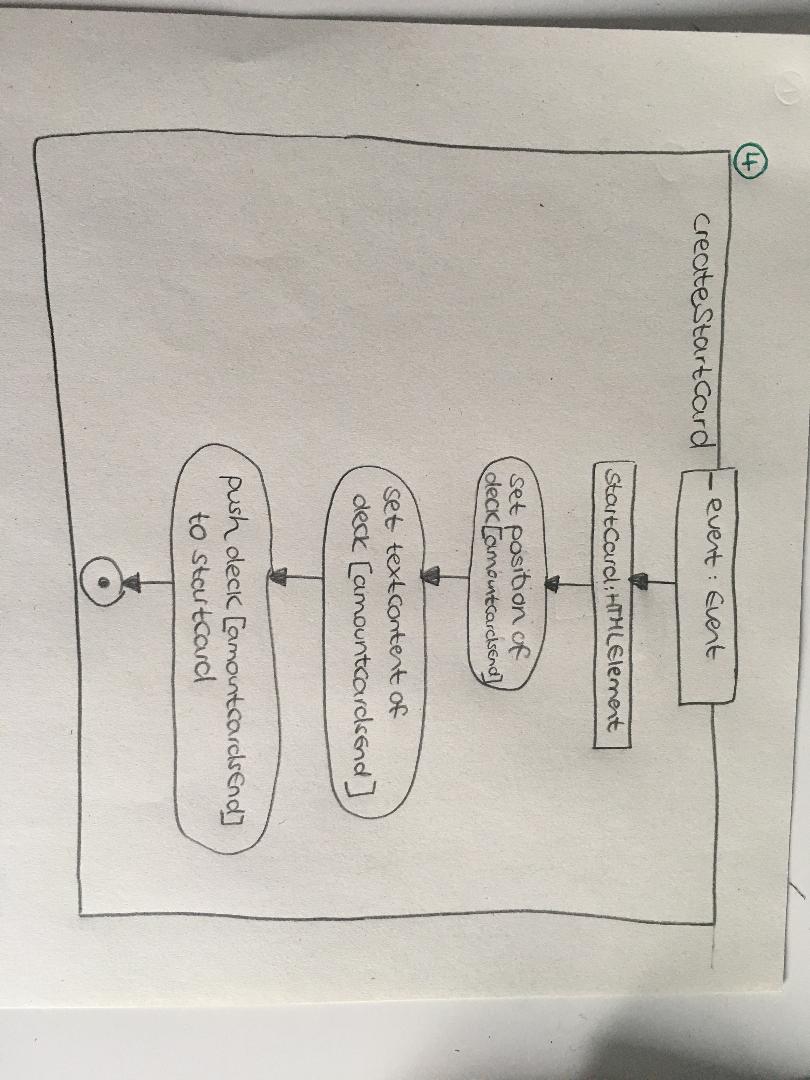 4
createStartCard
_event : Event
StartCard:HTMLElement
set position of
deck[amountCardsEnd]
set textContent of
deck [amountCardsEnd]
push deck [amountCardsEnd]
to startCard